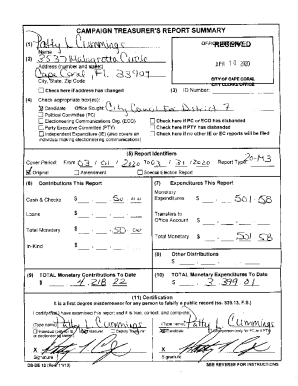 CAMPAIGN TREASURER'S REPORT SUMMARY
(1) Patty L Cummings
Name
(2)
Address (number and street)
Cape Coral, FL 33909
City, State, Zip Code
Check here if address has changed
OFFICE USE ONLY
RECEIVED
APR 10 2020
CITY OF CAPE CORAL
CITY CLERKS OFFICE
(3) ID Number:
(4) Check appropriate box(es):
Candidate Office Sought: City Council For District 7
Political Committee (PC)
Electioneering Communications Org. (ECO)
Party Executive Committee (PTY)
Independent Expenditure (IE) (also covers an
individual making electioneering communications)
Check here if PC or ECO has disbanded
Check here if PTY has disbanded
Check here if no other IE or EC reports will be filed
(5) Report Identifiers
Cover Period: From 03 / 01 / 2020 To 03 / 31 / 2020 Report Type: 20-M3
Original Amendment Special Election Report
(6) Contributions This Report
Cash & Checks $ 50
Loans $
Total Monetary $ 50
In-Kind $
(7) Expenditures This Report
Monetary
Expenditures $ 501.58
Transfers to
Office Account $
Total Monetary $ 501 58
(8) Other Distributions
$
(9) TOTAL Monetary Contributions To Date
$ 4,218.22
(10) TOTAL Monetary Expenditures To Date
$ 3,399.01
(11) Certification
It is a first degree misdemeanor for any person to falsify a public record (ss. 839.13, F.S.)
I certify that I have examined this report and it is true, correct, and complete:
(Type name) Patty L Cummings
(Type name) Patty L Cummings
X
Signature
X
Signature
DS-DE 12 (Rev. 11/13) SEE REVERSE FOR INSTRUCTIONS